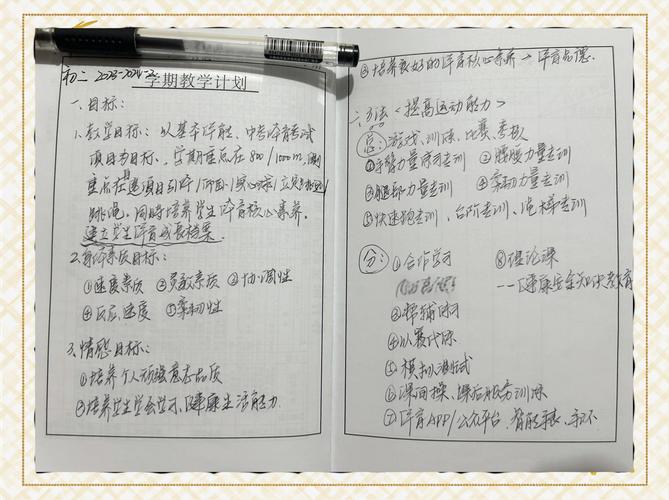 初二 2023-2024
学期教学计划
一、目标：
1、教学目标：以基本体能、中考体育考试
项目为目标，学期重点在800/1000m，
重点在选项目引体/仰卧/实心球/立定
跳绳，同时培养学生体育核心素养，
建立学生体育成长档案。
2、身体素质目标：
①速度素质 ②灵敏素质 ③协调性
④反应速度 ⑤柔韧性
3、情感目标：
①培养个人顽强意志品质
②培养学生学会学习、健康生活能力
③培养良好的体育核心素养→体育品德.
二、方法<提高运动能力>
总：游戏、训练、比赛、考核
①手臂力量练习专训 ②腰腹力量专训
③腿部力量专训 ④柔韧力量专训
⑤快速跑专训、台阶专训、专训
分：①合作学习 ⑧理论课
——健康安全知识教育
③帮辅练习
④以赛代练
⑤模拟测试
⑥课间操、课后服务训练
⑦体育APP/公众平台、智能手表、手环